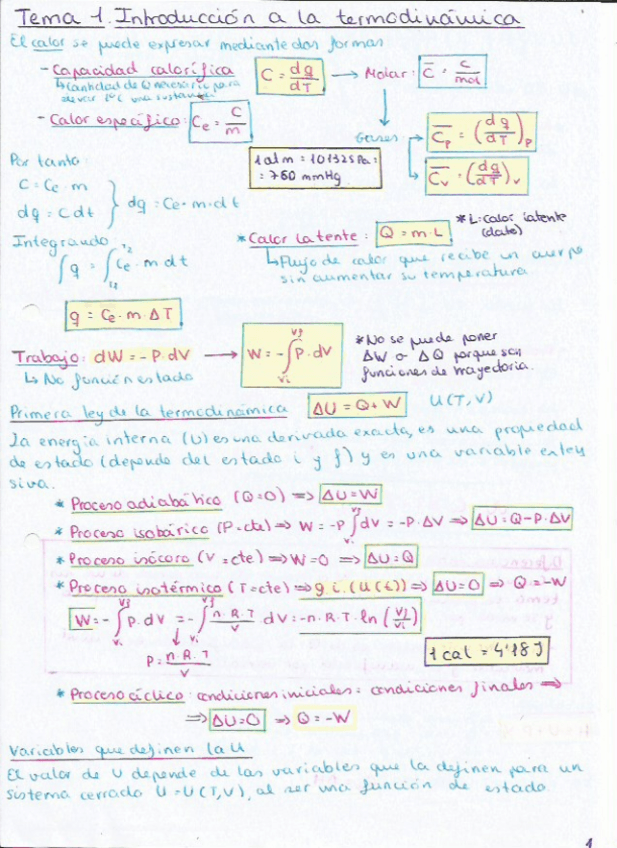 Tema 1. Introducción a la termodinámica
El calor se puede expresar mediante dos formas
- Capacidad calorífica C = dq/dT → Molar: C̅ = C/mol
↳ Cantidad de Q necesaria para elevar 1ºC una sustancia
- Calor específico: Ce = C/m
Gases:
C̅p = (dq/dT)p
C̅v = (dq/dT)v
1 atm = 101325 Pa =
= 760 mmHg
Por tanto:
C = Ce · m
dq = C dt
} dq = Ce · m · dt
Integrando:
∫q = ∫ Ce · m dt
q = Ce · m · ΔT
* Calor latente: Q = m · L
* L = calor latente (dato)
↳ Flujo de calor que recibe un cuerpo
sin aumentar su temperatura.
Trabajo: dW = -P · dV → W = -∫ P · dV
Vf
Vi
↳ No función estado
* No se puede poner
ΔW o ΔQ porque son
funciones de trayectoria.
Primera ley de la termodinámica ΔU = Q + W U(T, V)
La energía interna (U) es una derivada exacta, es una propiedad
de estado (depende del estado i y f) y es una variable exten
siva.
* Proceso adiabático (Q=0) ⇒ ΔU = W
* Proceso isobárico (P=cte) ⇒ W = -P ∫ dV = -P · ΔV ⇒ ΔU = Q - P · ΔV
* Proceso isócoro (V=cte) ⇒ W=0 ⇒ ΔU = Q
* Proceso isotérmico (T=cte) ⇒ g.i. (U(t)) ⇒ ΔU=0 ⇒ Q = -W
W = -∫ P · dV = -∫ n·R·T/V dV = -n · R · T · ln (Vf/Vi)
P = n·R·T/V
1 cal = 4'18 J
* Proceso cíclico: condiciones iniciales = condiciones finales ⇒
⇒ ΔU=0 ⇒ Q = -W
Variables que definen la U
El valor de U depende de las variables que la definen para un
sistema cerrado U = U(T, V), al ser una función de estado.
1